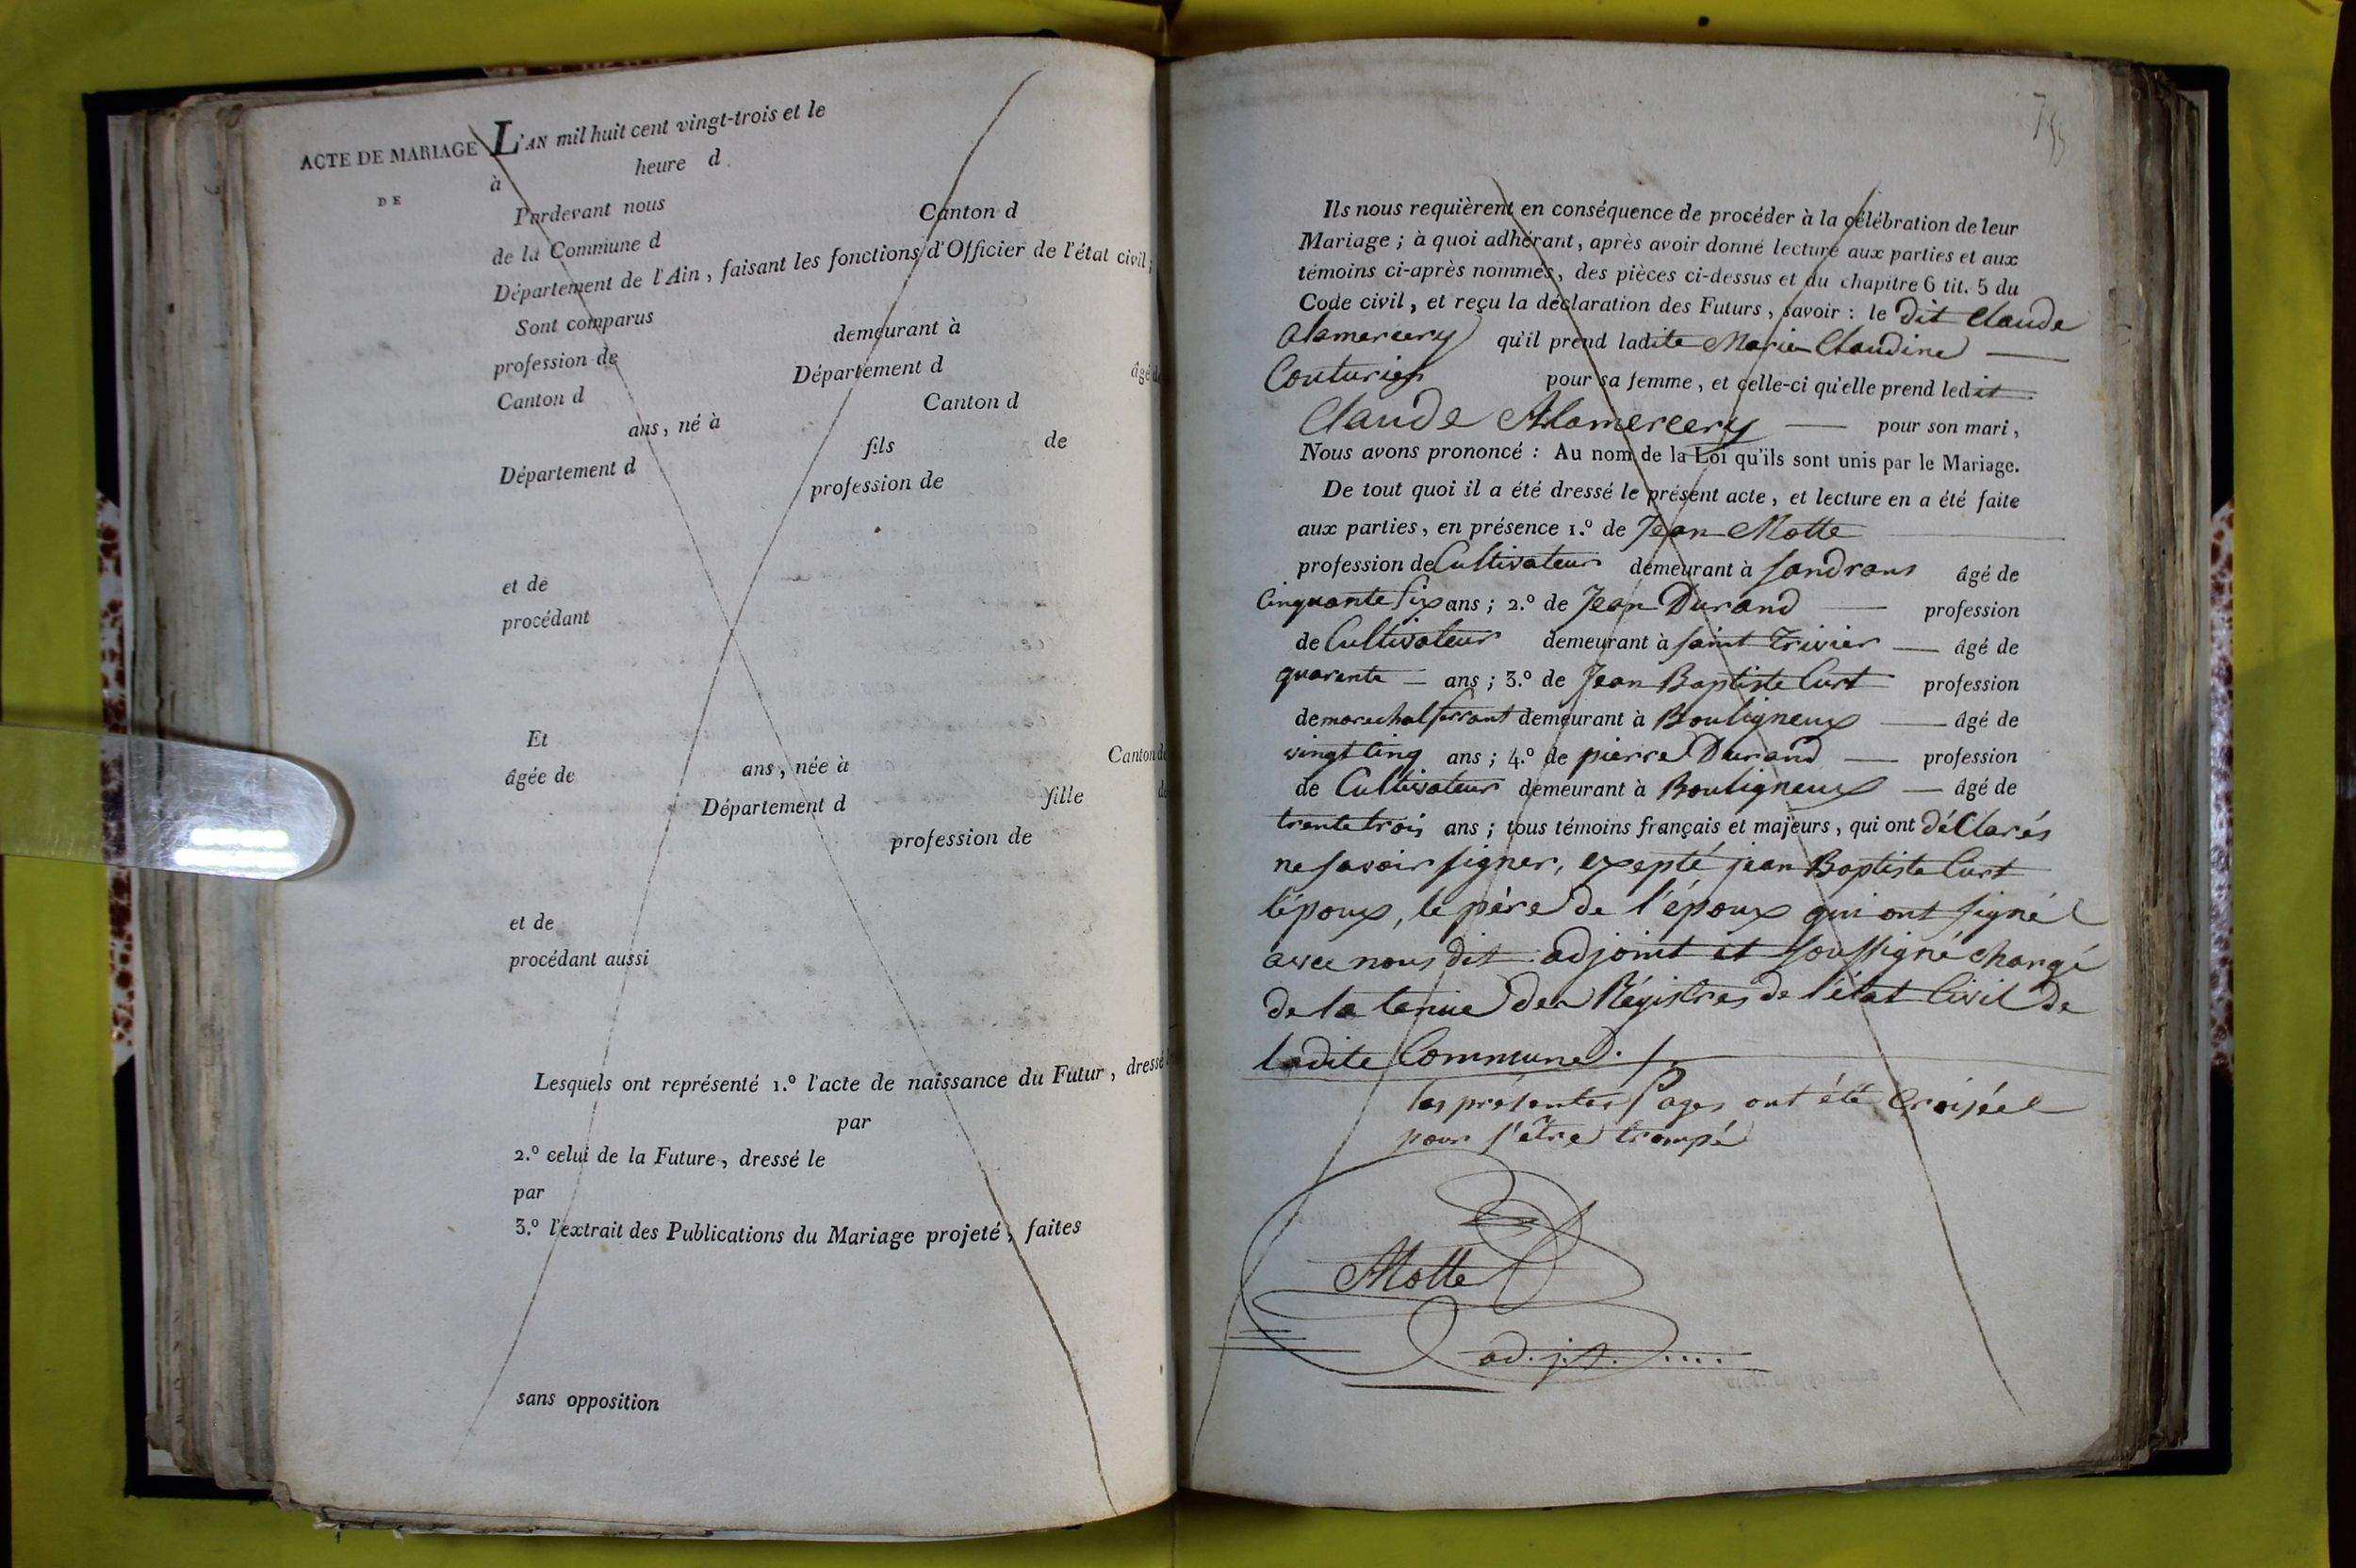 ACTE DE MARIAGE L'AN mil huit cent vingt-trois et le
DE à heure d
Pardevant nous
de la Commune d Canton d
Département de l'Ain, faisant les fonctions d'Officier de l'état civil;
Sont comparus
profession de demeurant à
Canton d Département d âgé de
ans, né à Canton d
Département d fils de
profession de
et de
procédant
Et
âgée de ans, née à Canton de
Département d fille de
profession de
et de
procédant aussi
Lesquels ont représenté 1.º l'acte de naissance du Futur, dressé
par
2.º celui de la Future, dressé le
par
3.º l'extrait des Publications du Mariage projeté, faites
sans opposition
Ils nous requièrent en conséquence de procéder à la célébration de leur
Mariage; à quoi adhérant, après avoir donné lecture aux parties et aux
témoins ci-après nommés, des pièces ci-dessus et du chapitre 6 tit. 5 du
Code civil, et reçu la déclaration des Futurs, savoir : le dit Claude
Alamercery qu'il prend ladite Marie Claudine
Couturier pour sa femme, et celle-ci qu'elle prend ledit
Claude Alamercery pour son mari,
Nous avons prononcé : Au nom de la Loi qu'ils sont unis par le Mariage.
De tout quoi il a été dressé le présent acte, et lecture en a été faite
aux parties, en présence 1.º de Jean Motte
profession de Cultivateur demeurant à Sandrans âgé de
Cinquante six ans; 2.º de Jean Durand profession
de Cultivateur demeurant à saint Trivier âgé de
quarente ans; 3.º de Jean Baptiste Curt profession
de marechal ferrant demeurant à Bouligneux âgé de
vingt cinq ans; 4.º de pierre Durand profession
de Cultivateur demeurant à Bouligneux âgé de
trente trois ans; tous témoins français et majeurs, qui ont déclarés
ne savoir signer, exepté jean Baptiste Curt
l'époux, le père de l'époux qui ont signé
avec nous dit adjoint et soussigné chargé
de la tenue des Régistres de l'état Civil de
ladite Commune.
les présentes Pages ont été Croisées
pour s'être trompé
Motte
ad.j.t.....